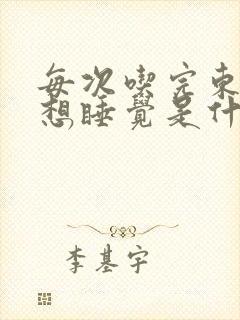 每次喫完東
想睡覺是什
李基宇